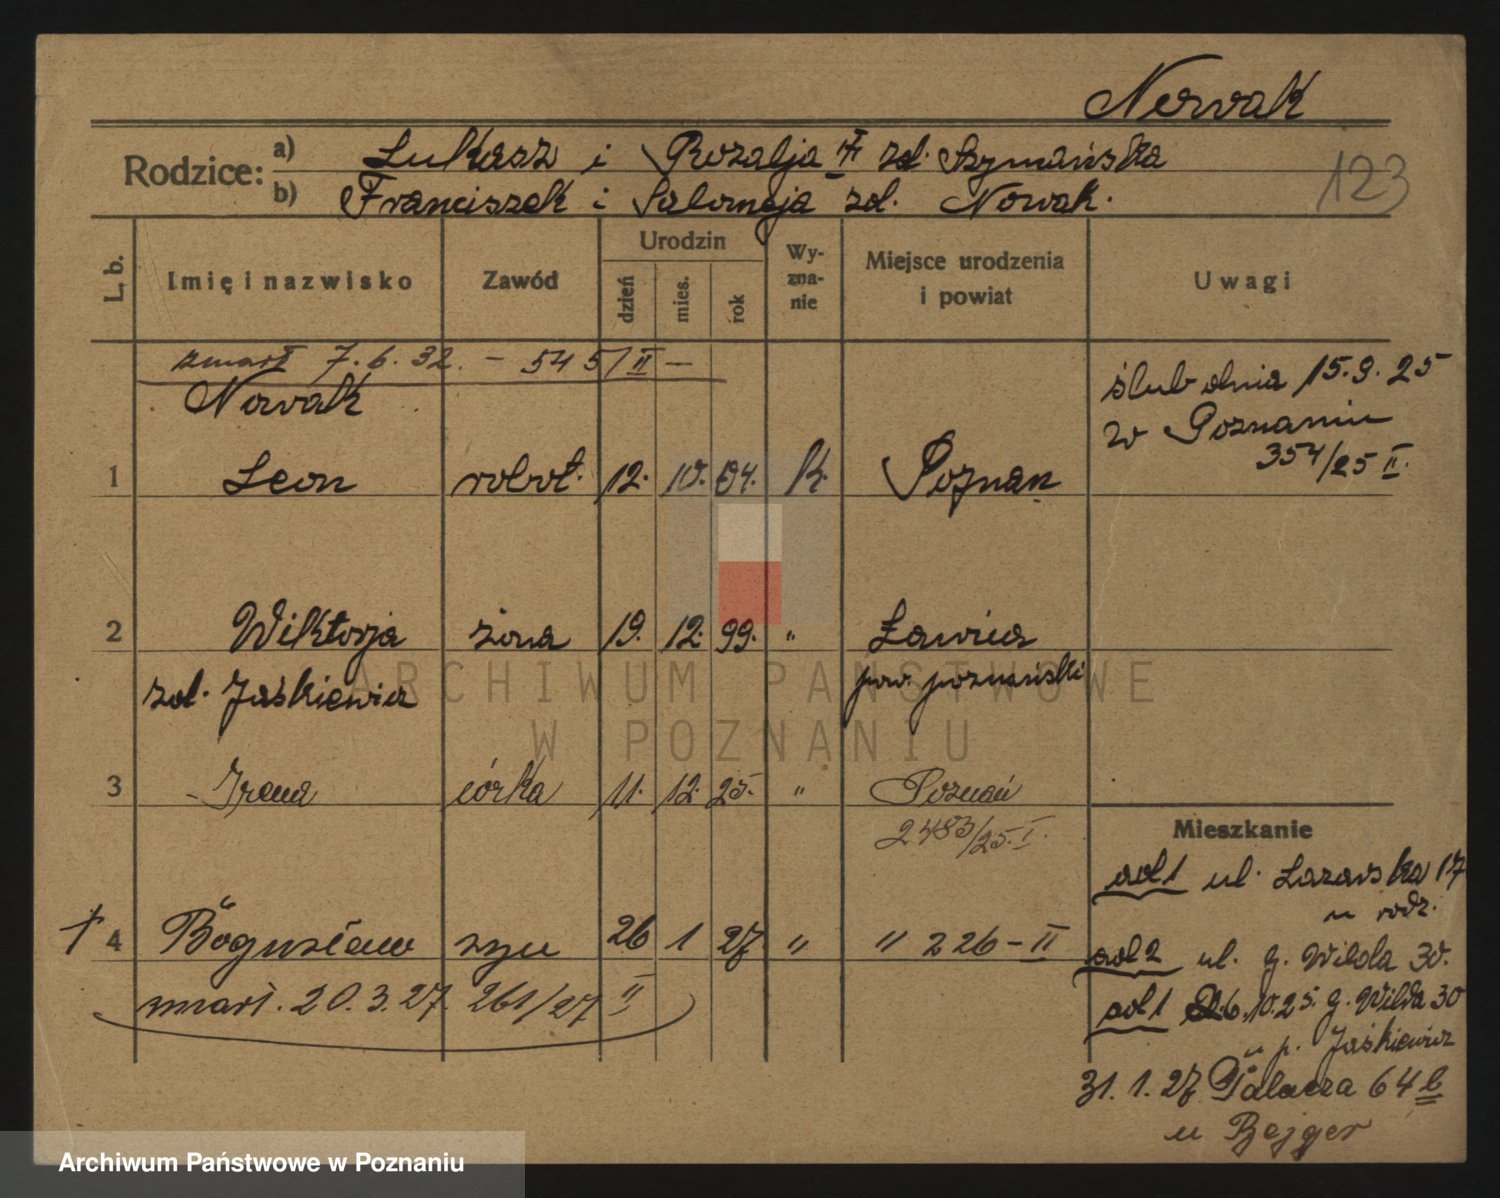 Nowak
Rodzice: a) Łukasz i Rozalja zd. Szymańska
b) Franciszek i Salomeja zd. Nowak.
123
L. b. Imię i nazwisko Zawód Urodzin dzień mies. rok Wy-zna-nie Miejsce urodzenia i powiat Uwagi
zmarł 7.6.32. – 545/II –
Nowak
1 Leon robot. 12. 10. 04. k. Poznań
ślub dnia 15.9.25
w Poznaniu
354/25 II.
2 Wiktorja żona 19. 12. 99. " Ławica
zd. Jaśkiewicz pow. poznański
3 - Irena córka 11. 12. 25. " Poznań
2483/25. I.
† 4 Bogusław syn 26 1 27 " " 226 – II
zmarł. 20.3.27. 261/27 II
Mieszkanie
ad 1 ul. Łazarska 17
u rodz.
ad 2 ul. g. Wilda 30.
ad 1 6.10.25. g. Wilda 30
u p. Jaśkiewicz
31.1.27 Palacza 64 b
u Bejger
ARCHIWUM PAŃSTWOWE
W POZNANIU
Archiwum Państwowe w Poznaniu